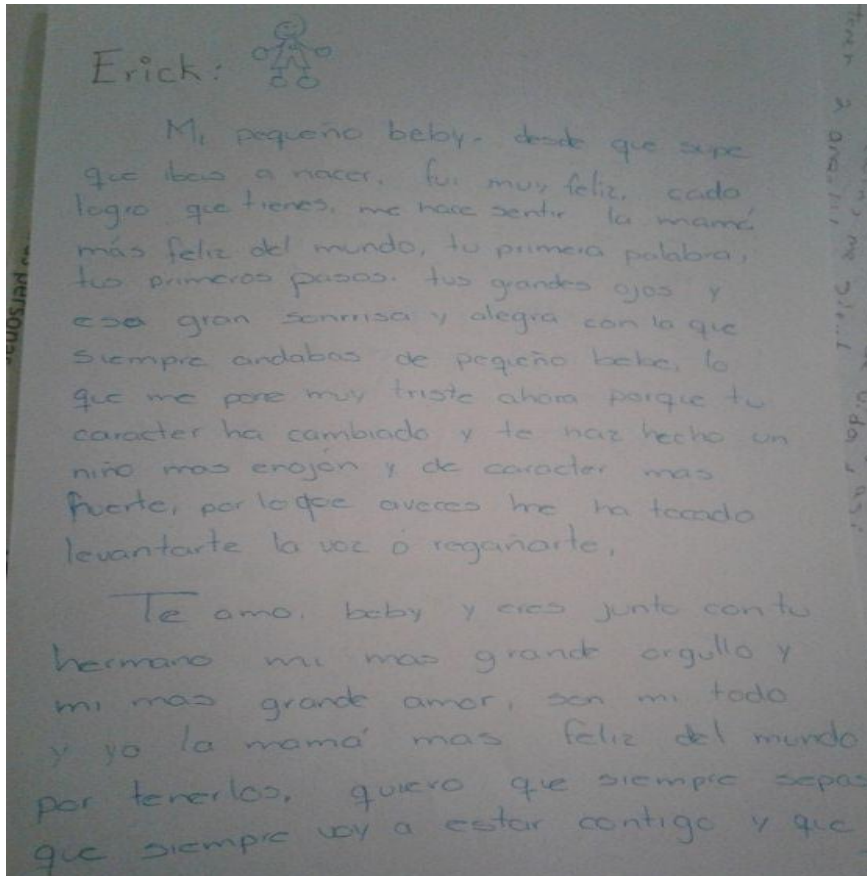 Erick:
Mi pequeño beby. desde que supe
que ibas a nacer. fui muy feliz, cada
logro que tienes, me hace sentir la mamá
más feliz del mundo, tu primera palabra,
tus primeros pasos. tus grandes ojos y
esa gran sonrrisa y alegra con la que
siempre andabas de pequeño bebe, lo
que me pone muy triste ahora porque tu
caracter ha cambiado y te haz hecho un
niño mas enojón y de caracter mas
fuerte, por lo que aveces me ha tocado
levantarte la voz o regañarte,
Te amo, beby y eres junto con tu
hermano mi mas grande orgullo y
mi mas grande amor, son mi todo
y yo la mamá mas feliz del mundo
por tenerlos, quiero que siempre sepas
que siempre voy a estar contigo y que